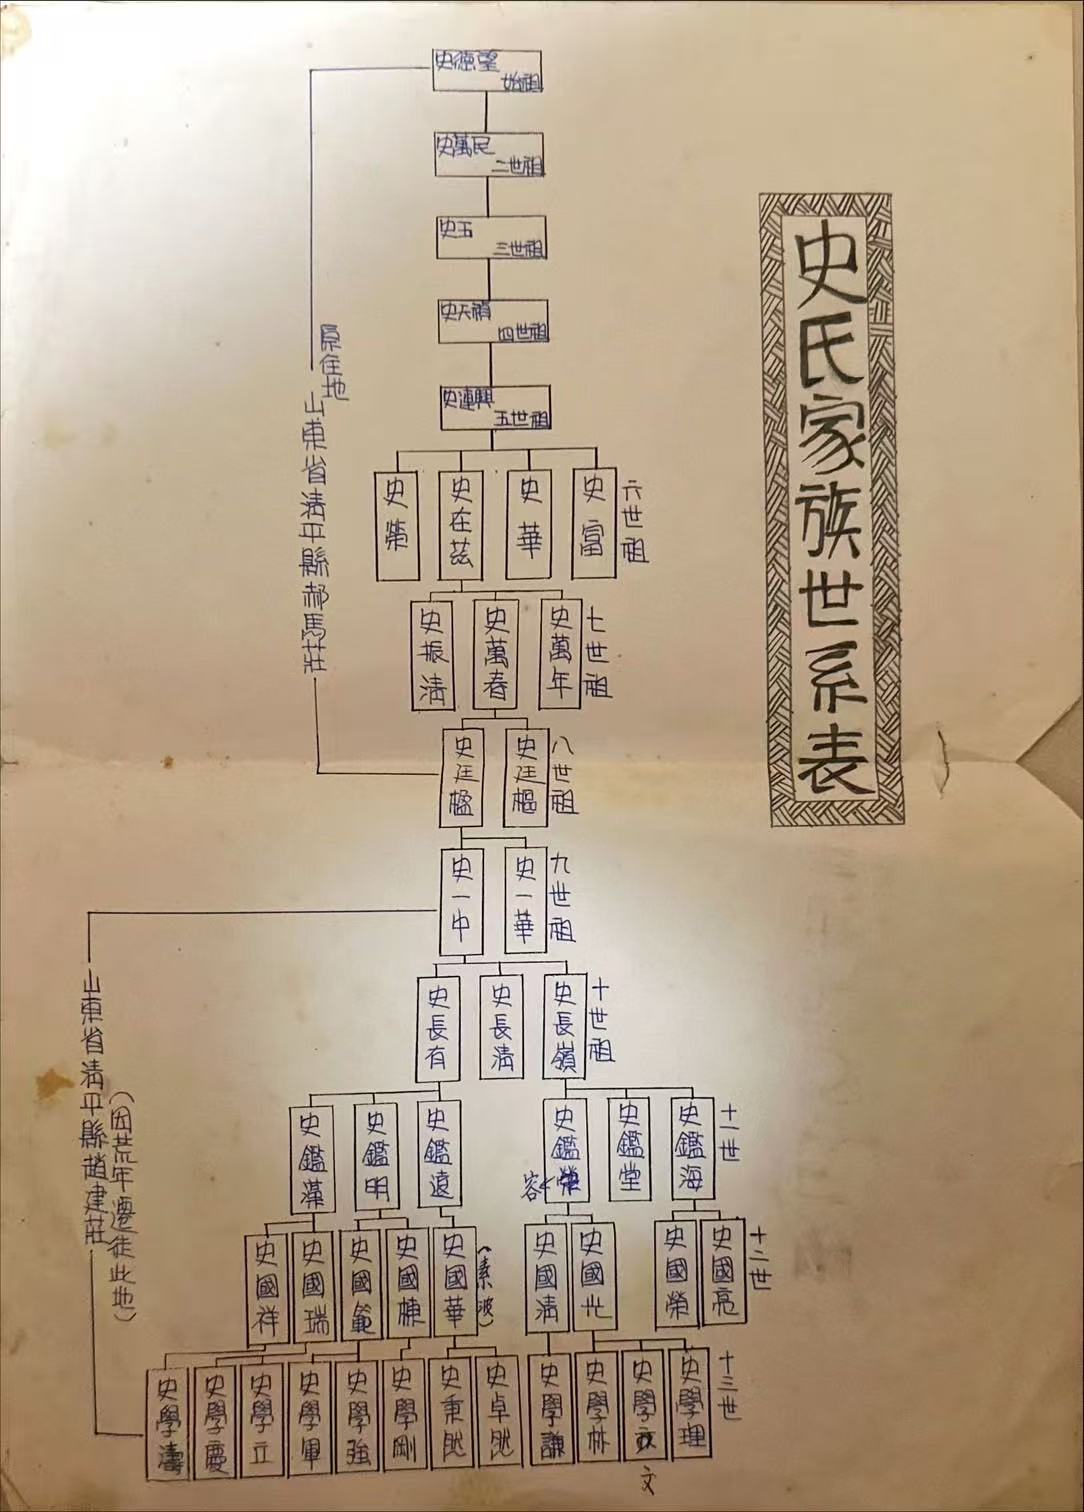 史氏家族世系表
史德望
始祖
史萬民
二世祖
史五
三世祖
史天禎
四世祖
史連興
五世祖
原住地
山東省清平縣郝馬莊
六世祖
史富
史華
史在茲
史榮
七世祖
史萬年
史萬春
史振清
八世祖
史廷樞
史廷楹
九世祖
史一華
史一中
十世祖
史長嶺
史長清
史長有
山東省清平縣趙建莊
(因荒年遷徒此地)
十一世
史鑑海
史鑑堂
史鑑榮
容
史鑑遠
史鑑明
史鑑藻
十二世
史國亮
史國榮
史國光
史國清
史國華
(素波)
史國棟
史國範
史國瑞
史國祥
十三世
史學理
史學文
文
史學林
史學謙
史卓然
史秉然
史學剛
史學強
史學軍
史學立
史學慶
史學濤